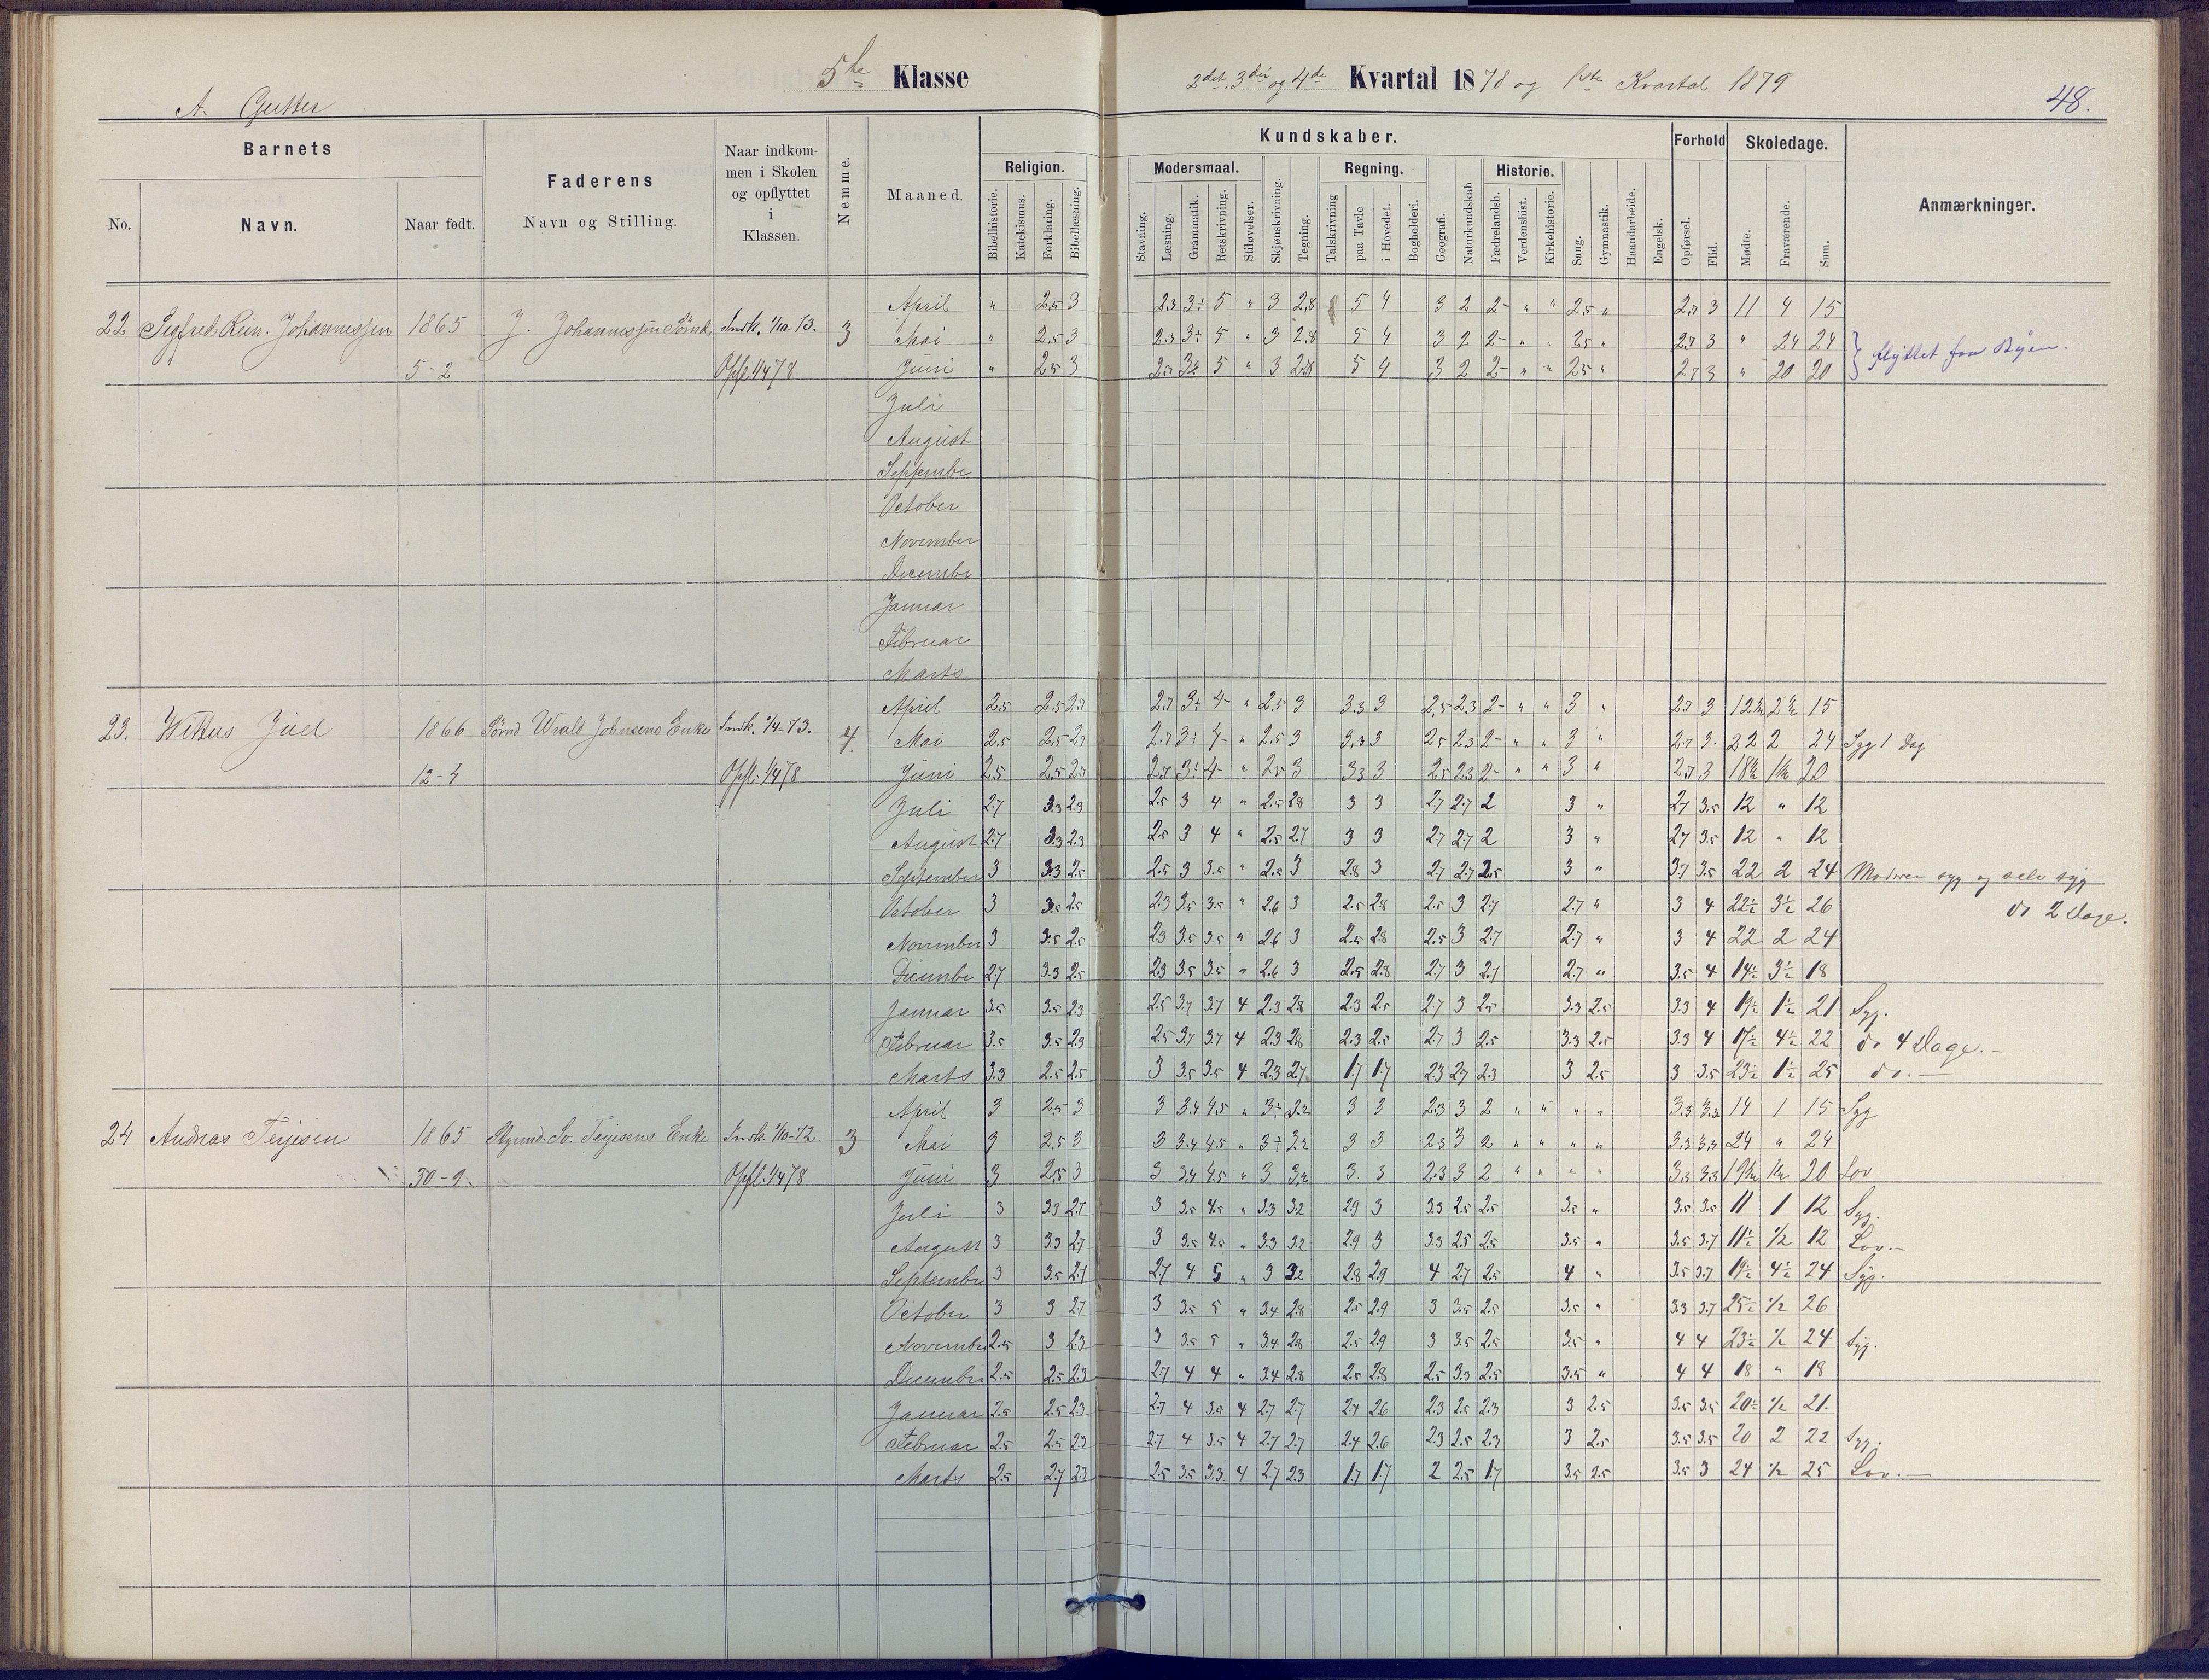 5te Klasse
2det, 3die og 4de Kvartal 1878 og 1ste Kvartal 1879
A. Gutter
48.
Barnets
No.
Navn.
Naar født.
Faderens
Navn og Stilling.
Naar indkom-
men i Skolen
og opflyttet
i
Klassen.
Nemme.
Maaned.
Kundskaber.
Religion.
Bibelhistorie.
Katekismus.
Forklaring.
Bibellæsning.
Modersmaal.
Stavning.
Læsning.
Grammatik.
Retskrivning.
Stiløvelser.
Skjønskrivning.
Tegning.
Regning.
Talskrivning
paa Tavle
i Hovedet.
Bogholderi.
Geografi.
Naturkundskab
Historie.
Fædrelandsh.
Verdenshist.
Kirkehistorie.
Sang.
Gymnastik.
Haandarbeide.
Engelsk.
Forhold
Opførsel.
Flid.
Skoledage.
Mødte.
Fraværende.
Sum.
Anmærkninger.
April " 2.5 3 2.3 3÷ 5 " 3 2.8 5 4 3 2 2- " " 2.5 " 2.7 3 11 4 15
22 Sigfred Rein. Johannesjen 1865 J. Johannesjen Tømd. Indk. 1/10-73. 3
Mai " 2.5 3 2.3 3÷ 5 " 3 2.8 5 4 3 2 2- " " 2.5 " 2.7 3 " 24 24
flyttet fra Byen.
5-2 Opfl. 1/4 78
Juni " 2.5 3 2.3 3÷ 5 " 3 2.8 5 4 3 2 2- " " 2.5 " 2.7 3 " 20 20
Juli
August
Septembr
October
November
Decembr
Januar
Februar
Marts
April 2.5 2.5 2.7 2.7 3÷ 4- " 2.5 3 3.3 3 2.5 2.3 2- " " 3 " 2.7 3 12½ 2½ 15
23. Wittus Juel 1866 Tømd Johnsens Enke Indk. 1/4-73. 4.
Mai 2.5 2.5 2.7 2.7 3÷ 4- " 2.5 3 3.3 3 2.5 2.3 2- " " 3 " 2.7 3. 22 2 24 Syg 1 Dag
12-4 Opfl. 1/4 78
Juni 2.5 2.5 2.7 2.7 3÷ 4- " 2.5 3 3.3 3 2.5 2.3 2- " " 3 " 2.7 3 18½ 1½ 20
Juli 2.7 3.3 2.3 2.5 3 4 " 2.5 2.8 3 3 2.7 2.7 2 3 " 2.7 3.5 12 " 12
August 2.7 3.3 2.3 2.5 3 4 " 2.5 2.7 3 3 2.7 2.7 2 3 " 2.7 3.5 12 " 12
September 3 3.3 2.5 2.5 3 3.5 " 2.5 3 2.8 3 2.7 2.7 2.5 3 " 3.7 3.5 22 2 24 Moderen syg og selv syg
October 3 3.5 2.5 2.3 3.5 3.5 " 2.6 3 2.5 2.8 2.5 3 2.7 2.7 " 3 4 22½ 3½ 26 do 2 Dage.
November 3 3.5 2.5 2.3 3.5 3.5 " 2.6 3 2.5 2.8 2.5 3 2.7 2.7 " 3 4 22 2 24
Decembr 2.7 3.3 2.5 2.3 3.5 3.5 " 2.6 3 2.5 2.8 2.7 3 2.7 2.7 " 3.5 4 14½ 3½ 18
Januar 3.5 3.5 2.3 2.5 3.7 3.7 4 2.3 2.8 2.3 2.5 2.7 3 2.5 3.3 2.5 3.3 4 19½ 1½ 21 Syg.
Februar 3.5 3.5 2.3 2.5 3.7 3.7 4 2.3 2.8 2.3 2.5 2.7 3 2.5 3.3 2.5 3.3 4 17½ 4½ 22 do 4 Dage.-
Marts 3.3 2.5 2.5 3 3.5 3.5 4 2.3 2.7 1.7 1.7 2.3 2.7 2.3 3 2.5 3 3.5 23½ 1½ 25 do.-
April 3 2.5 3 3 3.4 4.5 " 3÷ 3.2 3 3 2.3 3 2 " " " " 3.3 3.3 14 1 15 Syg
24 Andreas Terjesen 1865 Styrmd. Terjesens Enke Indk. 1/10-72. 3
Mai 3 2.5 3 3 3.4 4.5 " 3÷ 3.2 3 3 2.3 3 2 " " " " 3.3 3.3 24 " 24
30-9. Opfl. 1/4 78
Juni 3 2.5 3 3 3.4 4.5 " 3 3.2 3. 3 2.3 3 2 " " " " 3.3 3.3 19½ ½ 20 Lov
Juli 3 3.3 2.7 3 3.5 4.5 " 3.3 3.2 2.9 3 3.3 2.5 2.5 3.5 " 3.5 3.5 11 1 12 Syg.
August 3 3.3 2.7 3 3.5 4.5 " 3.3 3.2 2.9 3 3.3 2.5 2.5 3.5 " 3.5 3.7 11½ ½ 12 Lov.-
Septembr 3 3.5 2.7 2.7 4 5 " 3 3.2 2.8 2.9 4 2.7 2.5 4 " 3.5 3.7 19½ 4½ 24 Syg.
October 3 3 2.7 3 3.5 5 " 3.4 2.8 2.5 2.9 3 3.5 2.5 3.5 " 3.3 3.7 25½ ½ 26
November 2.5 3 2.3 3 3.5 5 " 3.4 2.8 2.5 2.9 3 3.5 2.5 3.5 " 4 4 23½ ½ 24 Syg.
December 2.5 2.5 2.3 2.7 4 4 " 3.4 2.8 2.5 2.8 2.5 3.3 2.5 3.5 " 4 4 18 " 18
Januar 2.5 2.5 2.3 2.7 4 3.5 4 2.7 2.7 2.4 2.6 2.3 2.5 2.3 3 2.5 3.5 3.5 20½ ½ 21.
Februar 2.5 2.5 2.3 2.7 4 3.5 4 2.7 2.7 2.4 2.6 2.3 2.5 2.3 3 2.5 3.5 3.5 20 2 22 Syg.
Marts 2.5 2.7 2.3 2.5 3.5 3.3 4 2.7 2.3 1.7 1.7 2 2.5 1.7 3.5 2.5 3.5 3 24 ½ 25 Lov.-